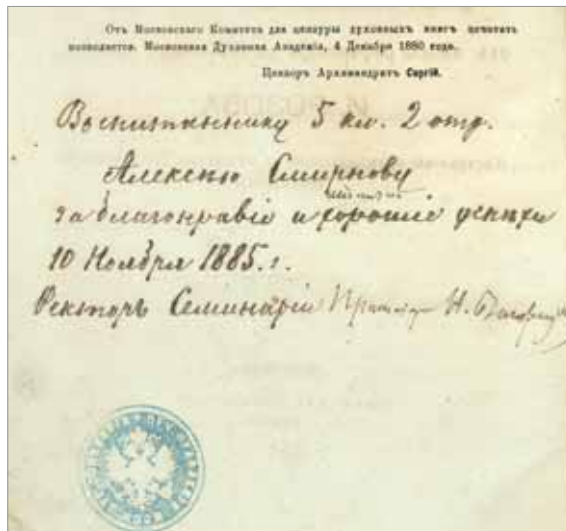 Отъ Московскаго Комитета для цензуры духовныхъ книгъ печатать
позволяется. Московская Духовная Академія, 4 Декабря 1880 года.
Цензоръ Архимандритъ Сергій.
Воспитаннику 5 кл. 2 отд.
Алексѣю Смирнову
за благонравіе и хорошіе успѣхи
10 Ноября 1885. г.
Ректоръ Семинаріи Н.